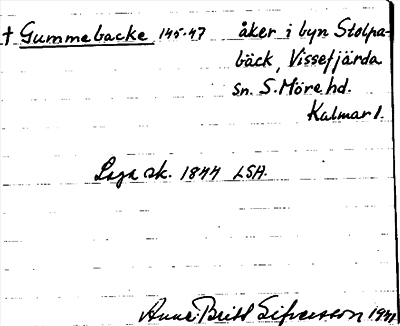 † Gummebacke 145-47 åker i byn Stolpa-
bäck, Vissefjärda
sn. S. Möre hd.
Kalmar l.
Laga sk. 1844 LSA.
Anna-Britt Sifversson 1941